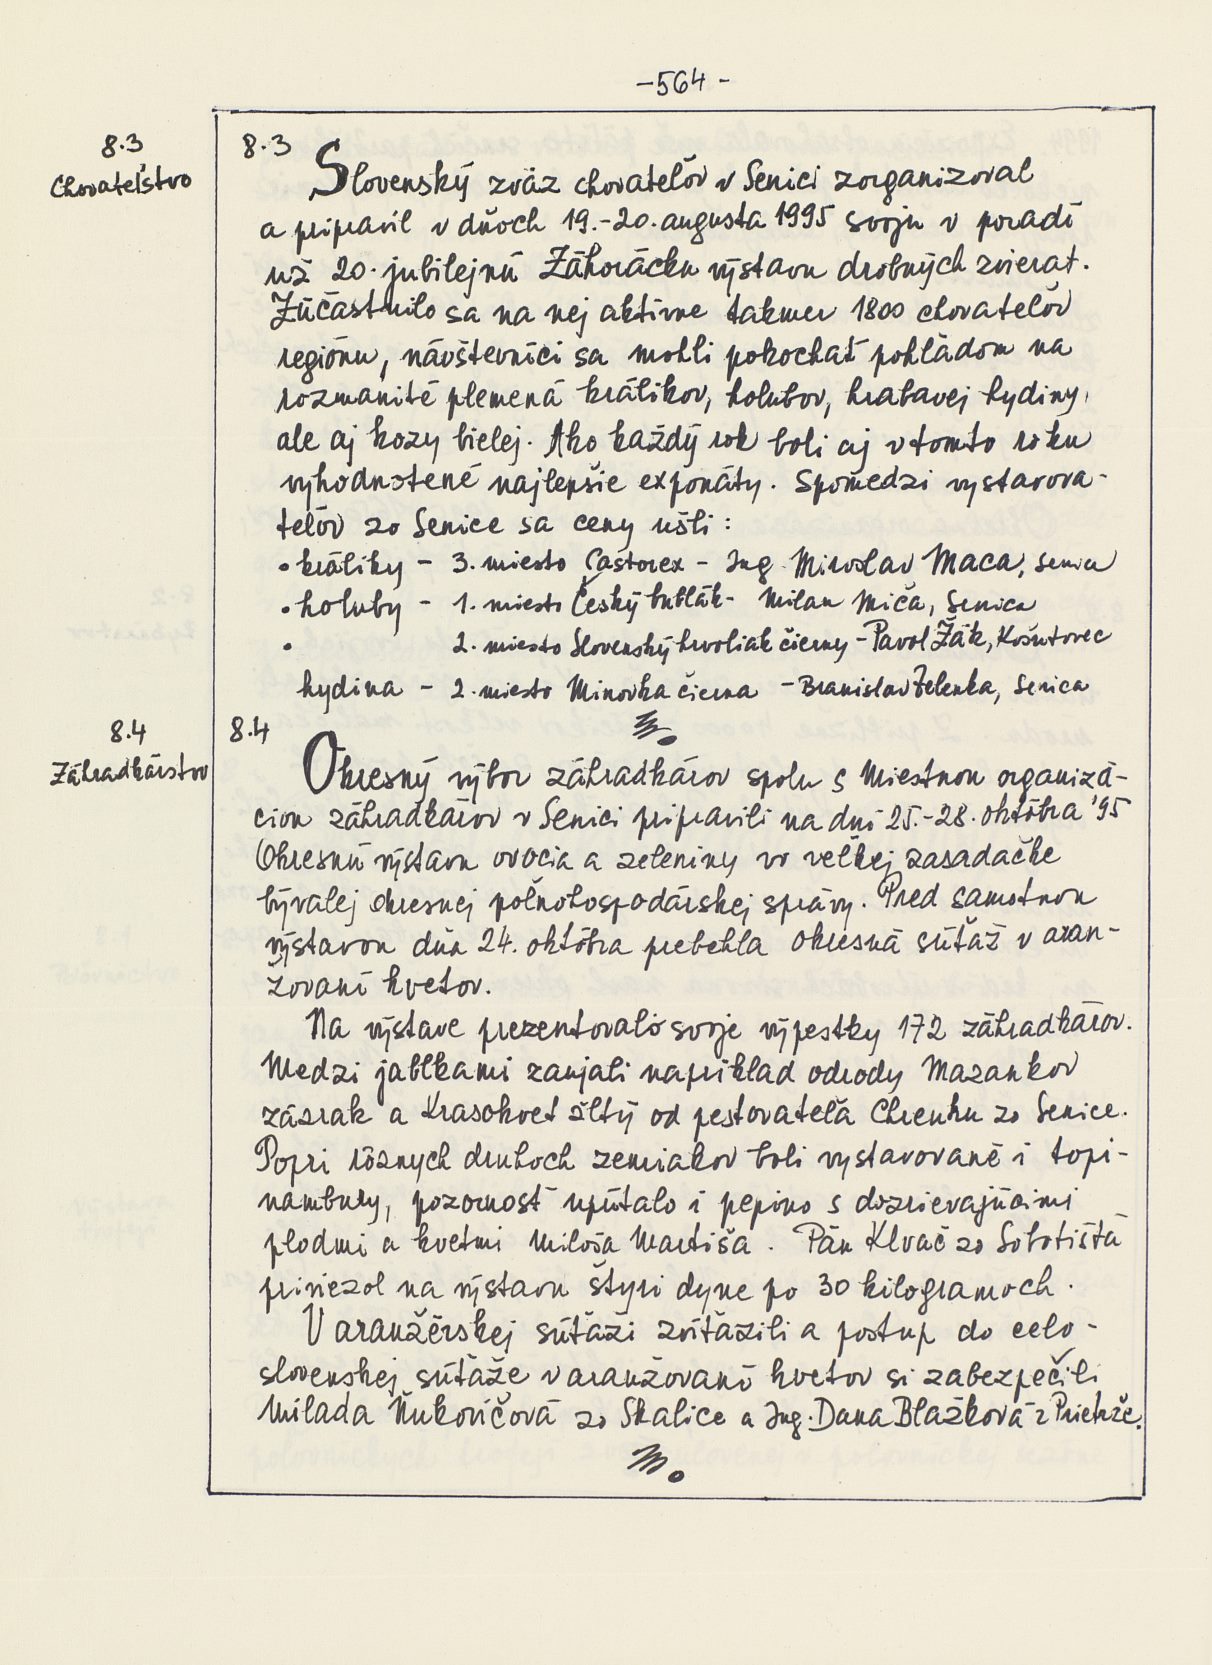 -564-
8.3
Chovateľstvo
8.3
Slovenský zväz chovateľov v Senici zorganizoval
a pripravil v dňoch 19.-20. augusta 1995 svoju v poradí
už 20. jubilejnú Záhorácku výstavu drobných zvierat.
Zúčastnilo sa na nej aktívne takmer 1800 chovateľov
regiónu, návštevníci sa mohli pokochať pohľadom na
rozmanité plemená králikov, holubov, hrabavej hydiny,
ale aj kozy bielej. Ako každý rok boli aj v tomto roku
vyhodnotené najlepšie exponáty. Spomedzi vystavova-
teľov zo Senice sa ceny ušli:
• králiky - 3. miesto Castorex - Ing Miroslav Maca, Senica
• holuby - 1. miesto Český bublák - Milan Miča, Senica
• 2. miesto Slovenský hrvoliak čierny - Pavol Žák, Košútovec
hydina - 2. miesto Minorka čierna - Branislav Zelenka, Senica
8.4
Záhradkárstvo
8.4
Okresný výbor záhradkárov spolu s Miestnou organizá-
ciou záhradkárov v Senici pripravili na dni 25.-28. októbra '95
Okresnú výstavu ovocia a zeleniny vo veľkej zasadačke
bývalej okresnej poľnohospodárskej správy. Pred samotnou
výstavou dňa 24. októbra prebehla okresná súťaž v aran-
žovaní kvetov.
Na výstave prezentovalo svoje výpestky 172 záhradkárov.
Medzi jablkami zaujali napríklad odrody Mazankov
zázrak a Krasokvet žltý od pestovateľa Chrenku zo Senice.
Popri rôznych druhoch zemiakov boli vystavované i topi-
nambury, pozornosť upútalo i pepino s dozrievajúcimi
plodmi a kvetmi Miloša Martiša. Pán Klvač zo Sobotišťa
priviezol na výstavu štyri dyne po 30 kilogramoch.
V aranžérskej súťaži zvíťazili a postup do celo-
slovenskej súťaže v aranžovaní kvetov si zabezpečili
Milada Ňukovičová zo Skalice a Ing. Dana Blažková z Prietrže.